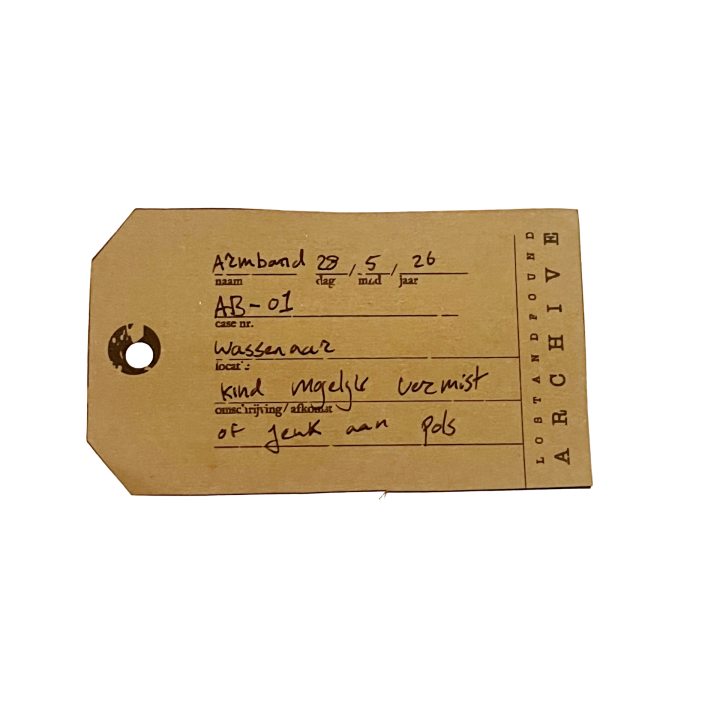 Armband 28 / 5 / 26
naam dag mnd jaar
AB-01
case nr.
Wassenaar
locatie:
kind mogelijk vermist
omschrijving / afkomst
of jeuk aan pols
LOSTANDFOUND
ARCHIVE